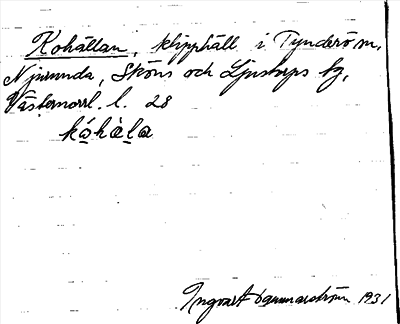 Kohällan, klipphäll i Tynderö sn,
Njurunda, Sköns och Ljustorps tg,
Västernorrl. l. 28
kóhàla
Ingvart 1931